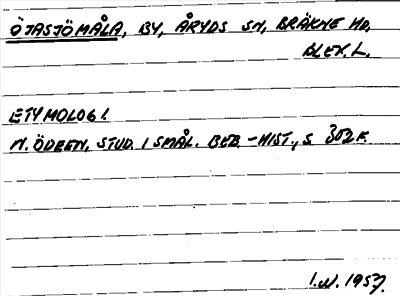 ÖJASJÖMÅLA, BY, ÅRYDS SN, BRÄKNE HD,
BLEK. L.
ETYMOLOGI.
N. ÖDEEN, STUD. I SMÅL. BEB.-HIST., S. 302 F.
I.W. 1957.